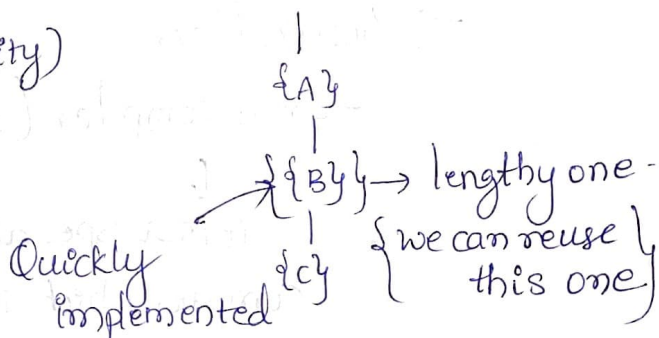 ity)
{A}
{{B}} → lengthy one -
Quickly
implemented
{we can reuse
this one}
{C}